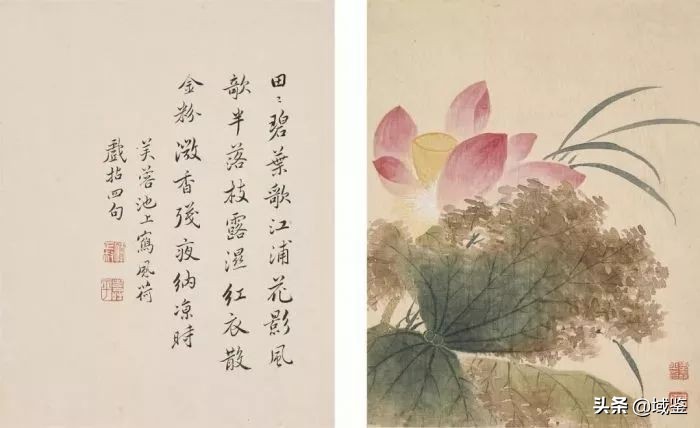 田〻碧葉歌江浦花影風
欹半落枝露濕紅衣散
金粉微香殘夜納涼時
芙蓉池上寫風荷
戲拈四句
头条 @域鉴